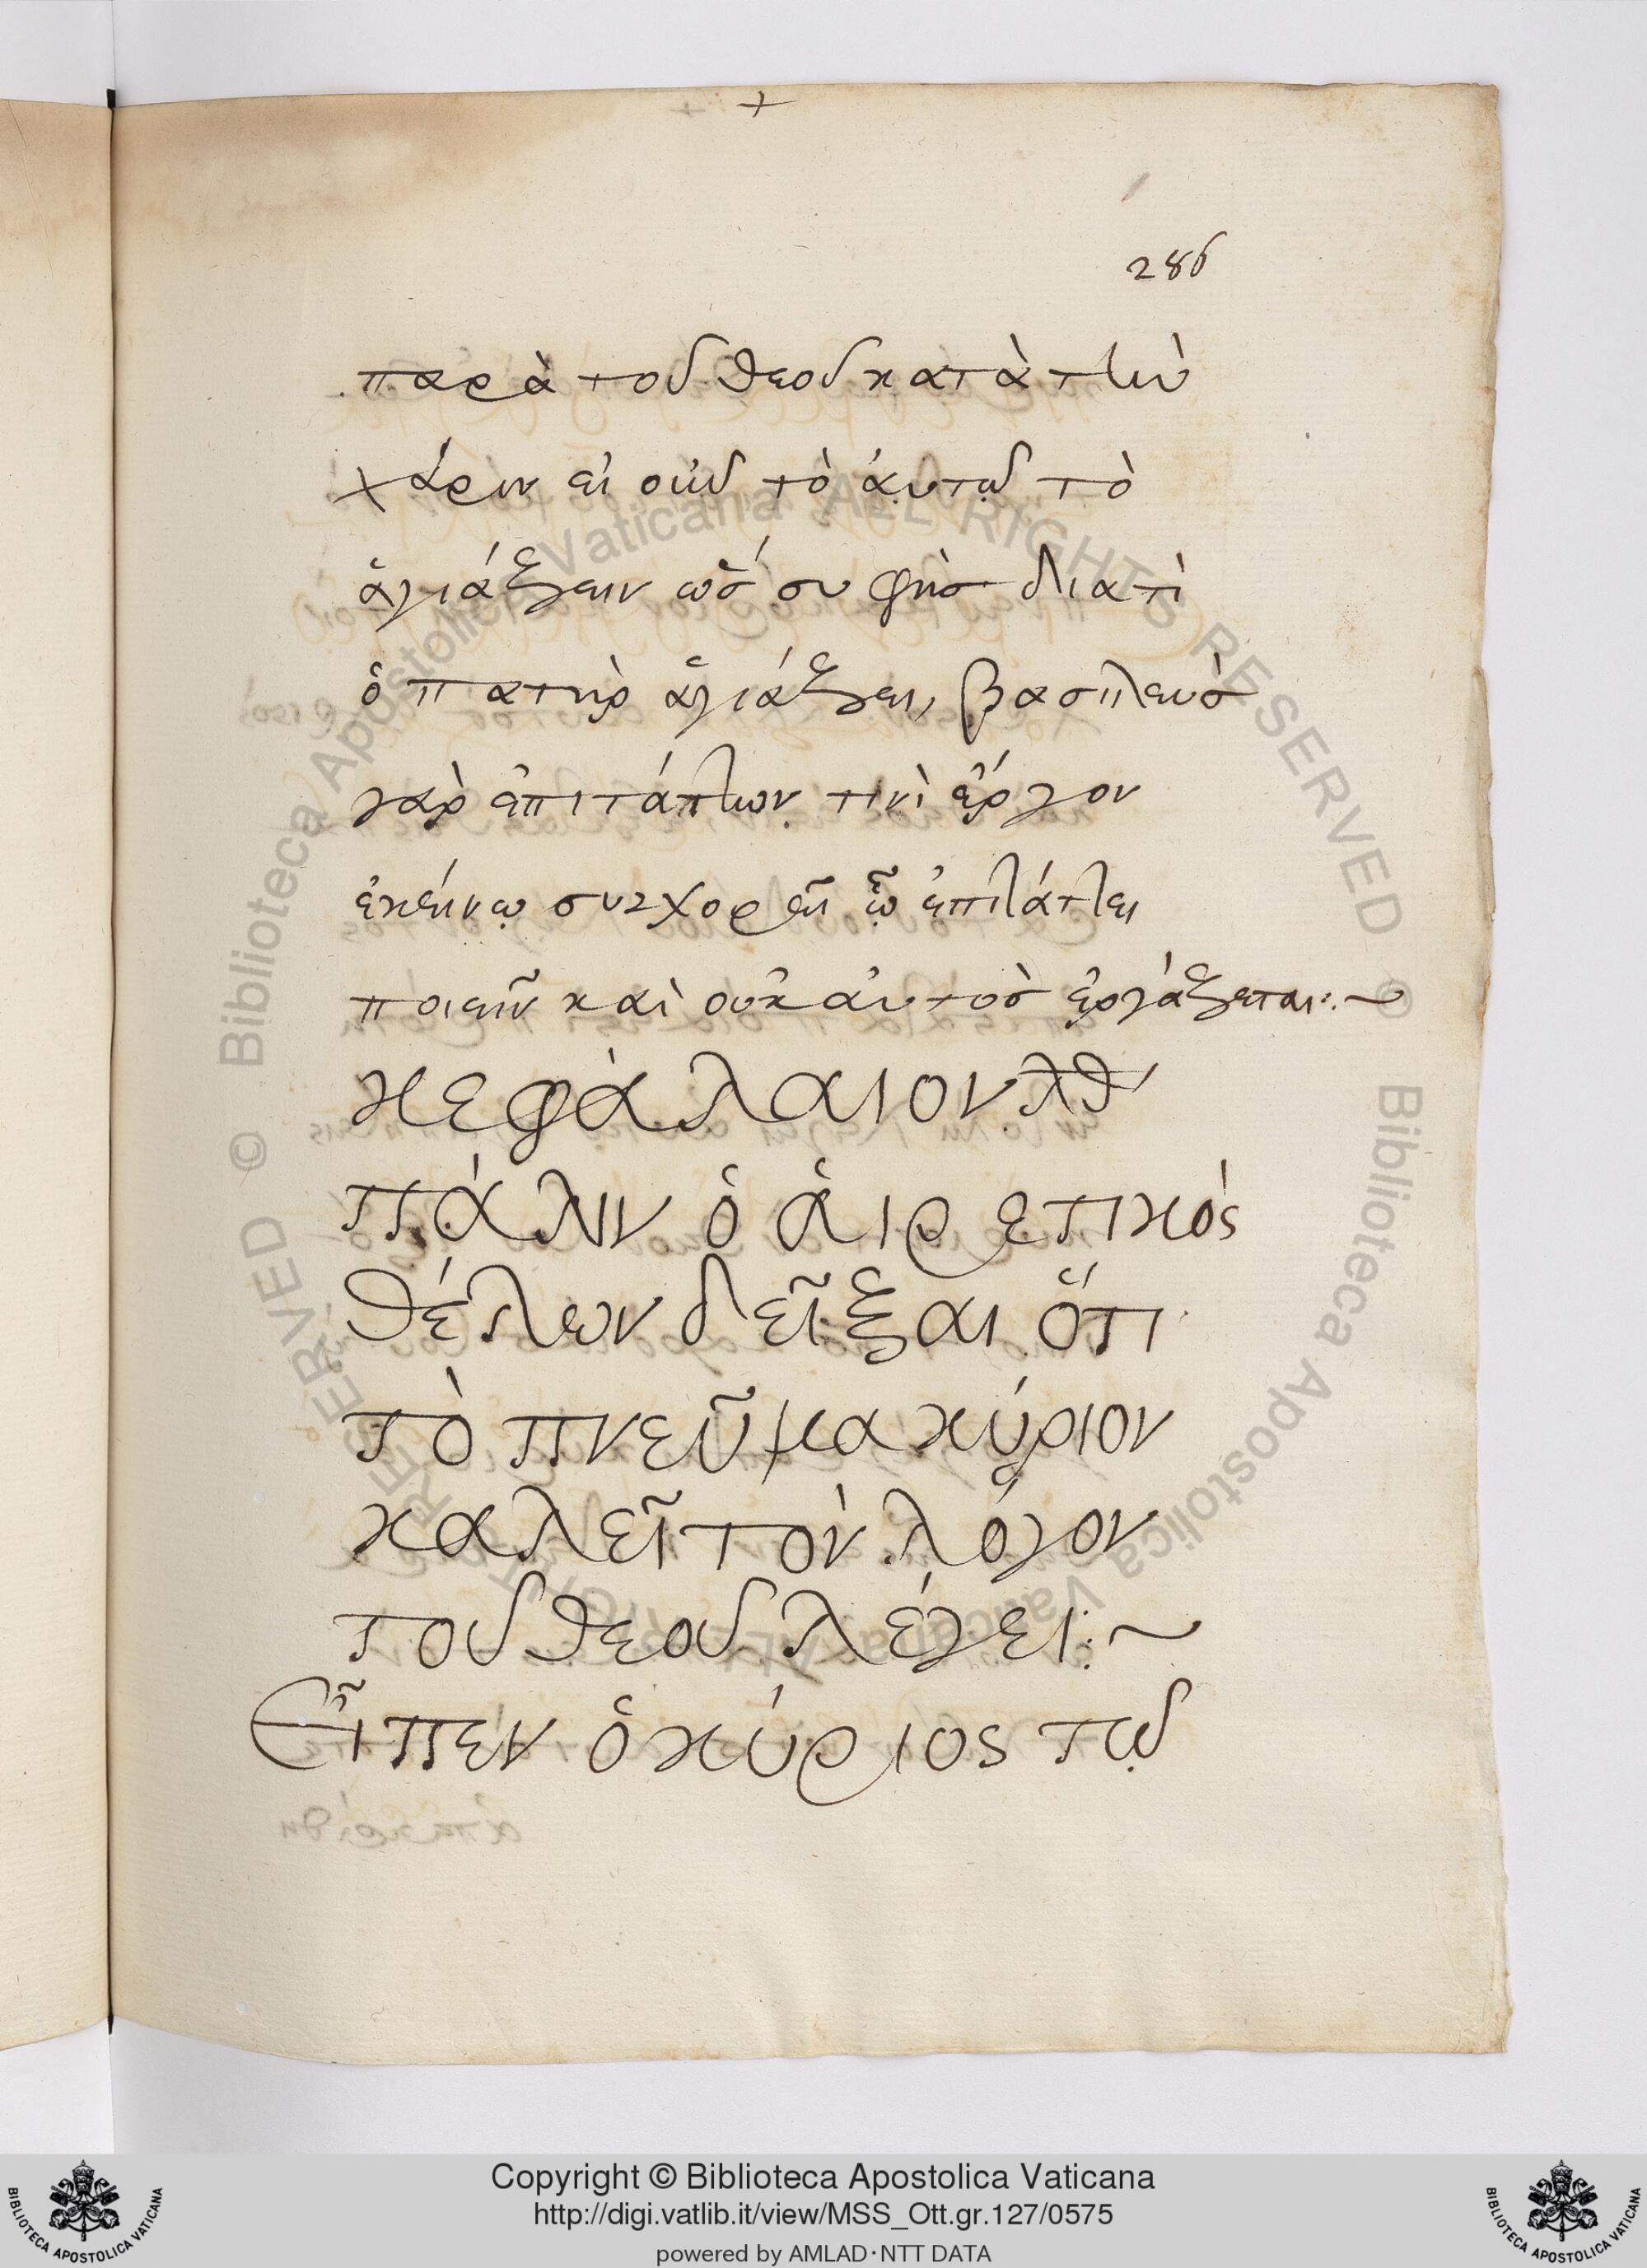 +
286
παρὰ τοῦ θεοῦ κατὰ τὴν
χάριν εἰ οὖν τὸ ἀυτῷ τὸ
ἁγιάζειν ὥσ συ φὴσ διατὶ
ὁ πατὴρ ἁγιάζει, βασιλεὺσ
γὰρ ἐπιτάττων τινὶ ἔργον
ἐκείνῳ συγχορεῖ ᾧ ἐπιτάττει
ποιεῖν καὶ οὐκ ἀυτὸσ ἐργάζεται:~
κεφάλαιον λθ
πάλιν ὁ ἁιρετικός
θέλων δεῖξαι ὅτι
τὸ πνεῦμα κύριον
καλεῖ τὸν λόγον
τοῦ θεοῦ λέγει:~
Εἶπεν ὁ κύριος τῷ
© Biblioteca Apostolica Vaticana ALL RIGHTS RESERVED © Biblioteca Apostolica Vaticana ALL RIGHTS RESERVED
Copyright © Biblioteca Apostolica Vaticana
http://digi.vatlib.it/view/MSS_Ott.gr.127/0575
powered by AMLAD·NTT DATA
BIBLIOTECA APOSTOLICA VATICANA
BIBLIOTECA APOSTOLICA VATICANA